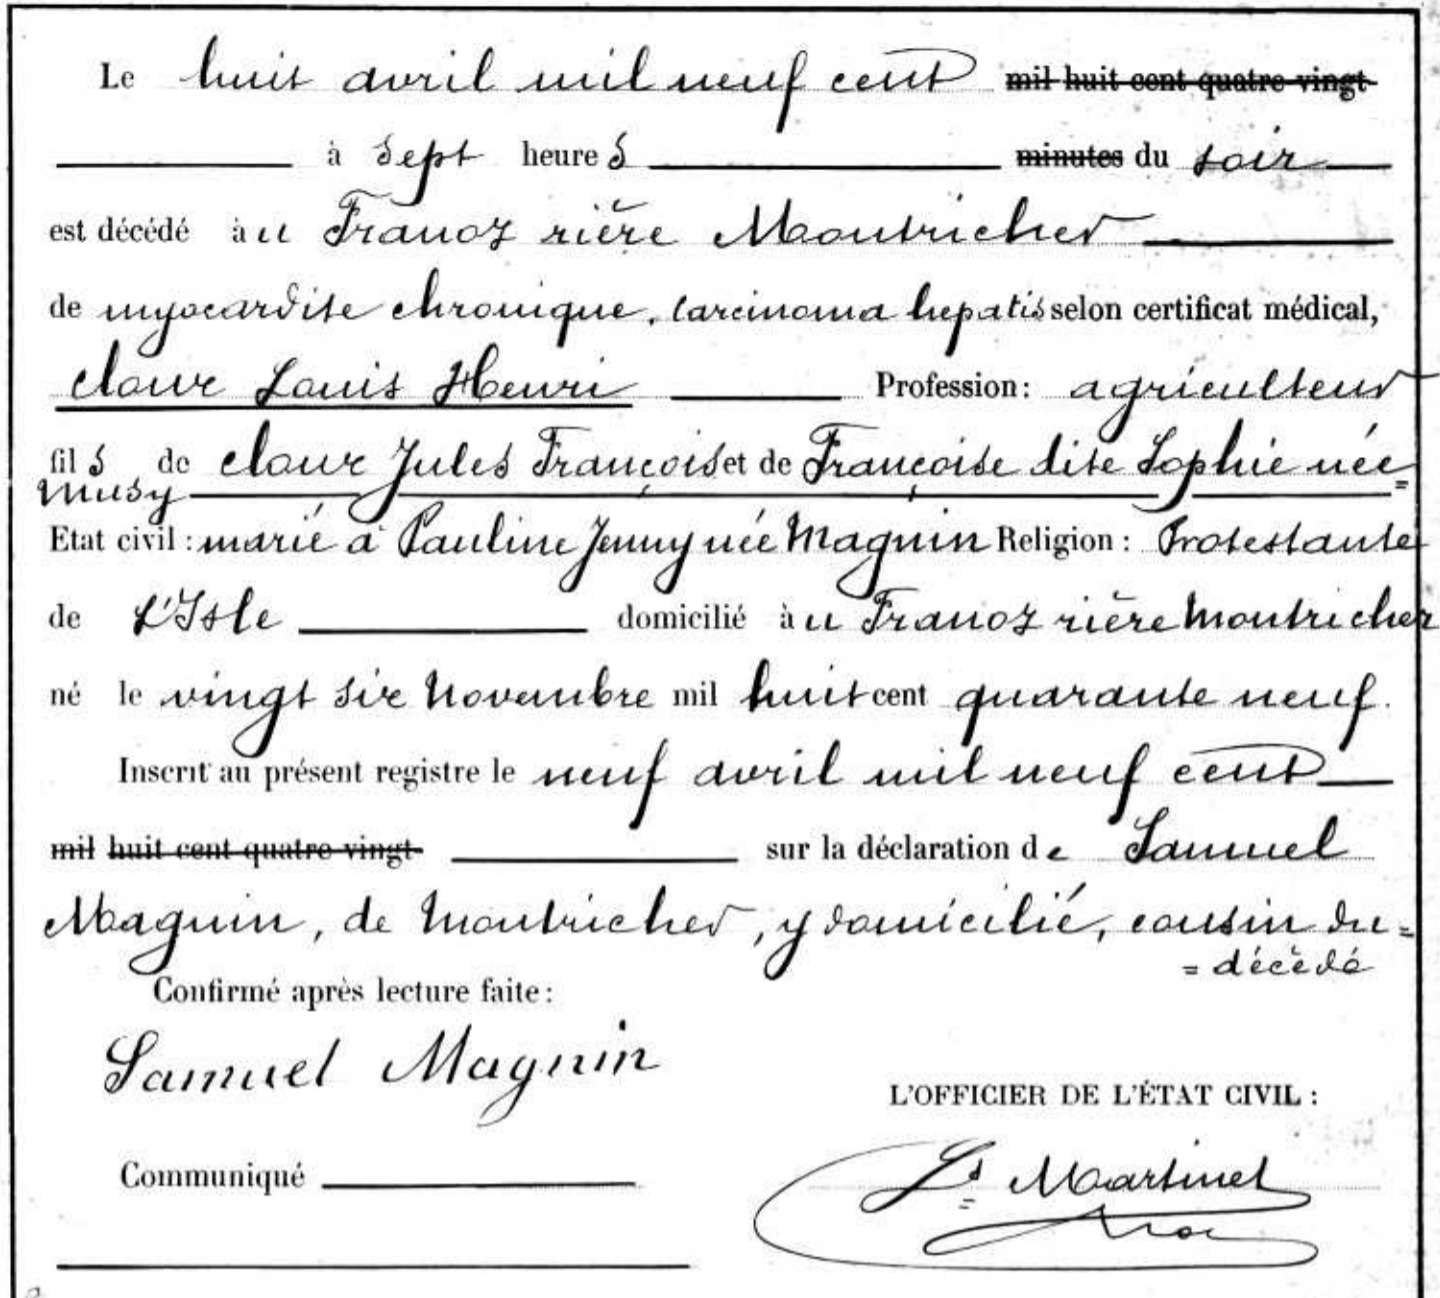 Le huit avril mil neuf cent mil huit cent quatre vingt
à sept heures minutes du soir
est décédé au Franoz rière Montricher
de myocardite chronique, carcinoma hepatis selon certificat médical,
Clauve Louis Henri Profession: agriculteur
fils de Clauve Jules François et de Françoise dite Sophie née
Musy
Etat civil: marié à Pauline Jenny née Magnin Religion: Protestante
de L'Isle domicilié au Franoz rière Montricher
né le vingt six Novembre mil huit cent quarante neuf.
Inscrit au présent registre le neuf avril mil neuf cent
mil huit cent quatre vingt sur la déclaration de Samuel
Magnin, de Montricher, y domicilié, cousin du =
= décédé
Confirmé après lecture faite:
Samuel Magnin
L'OFFICIER DE L'ÉTAT CIVIL:
Communiqué
Ls Martinet